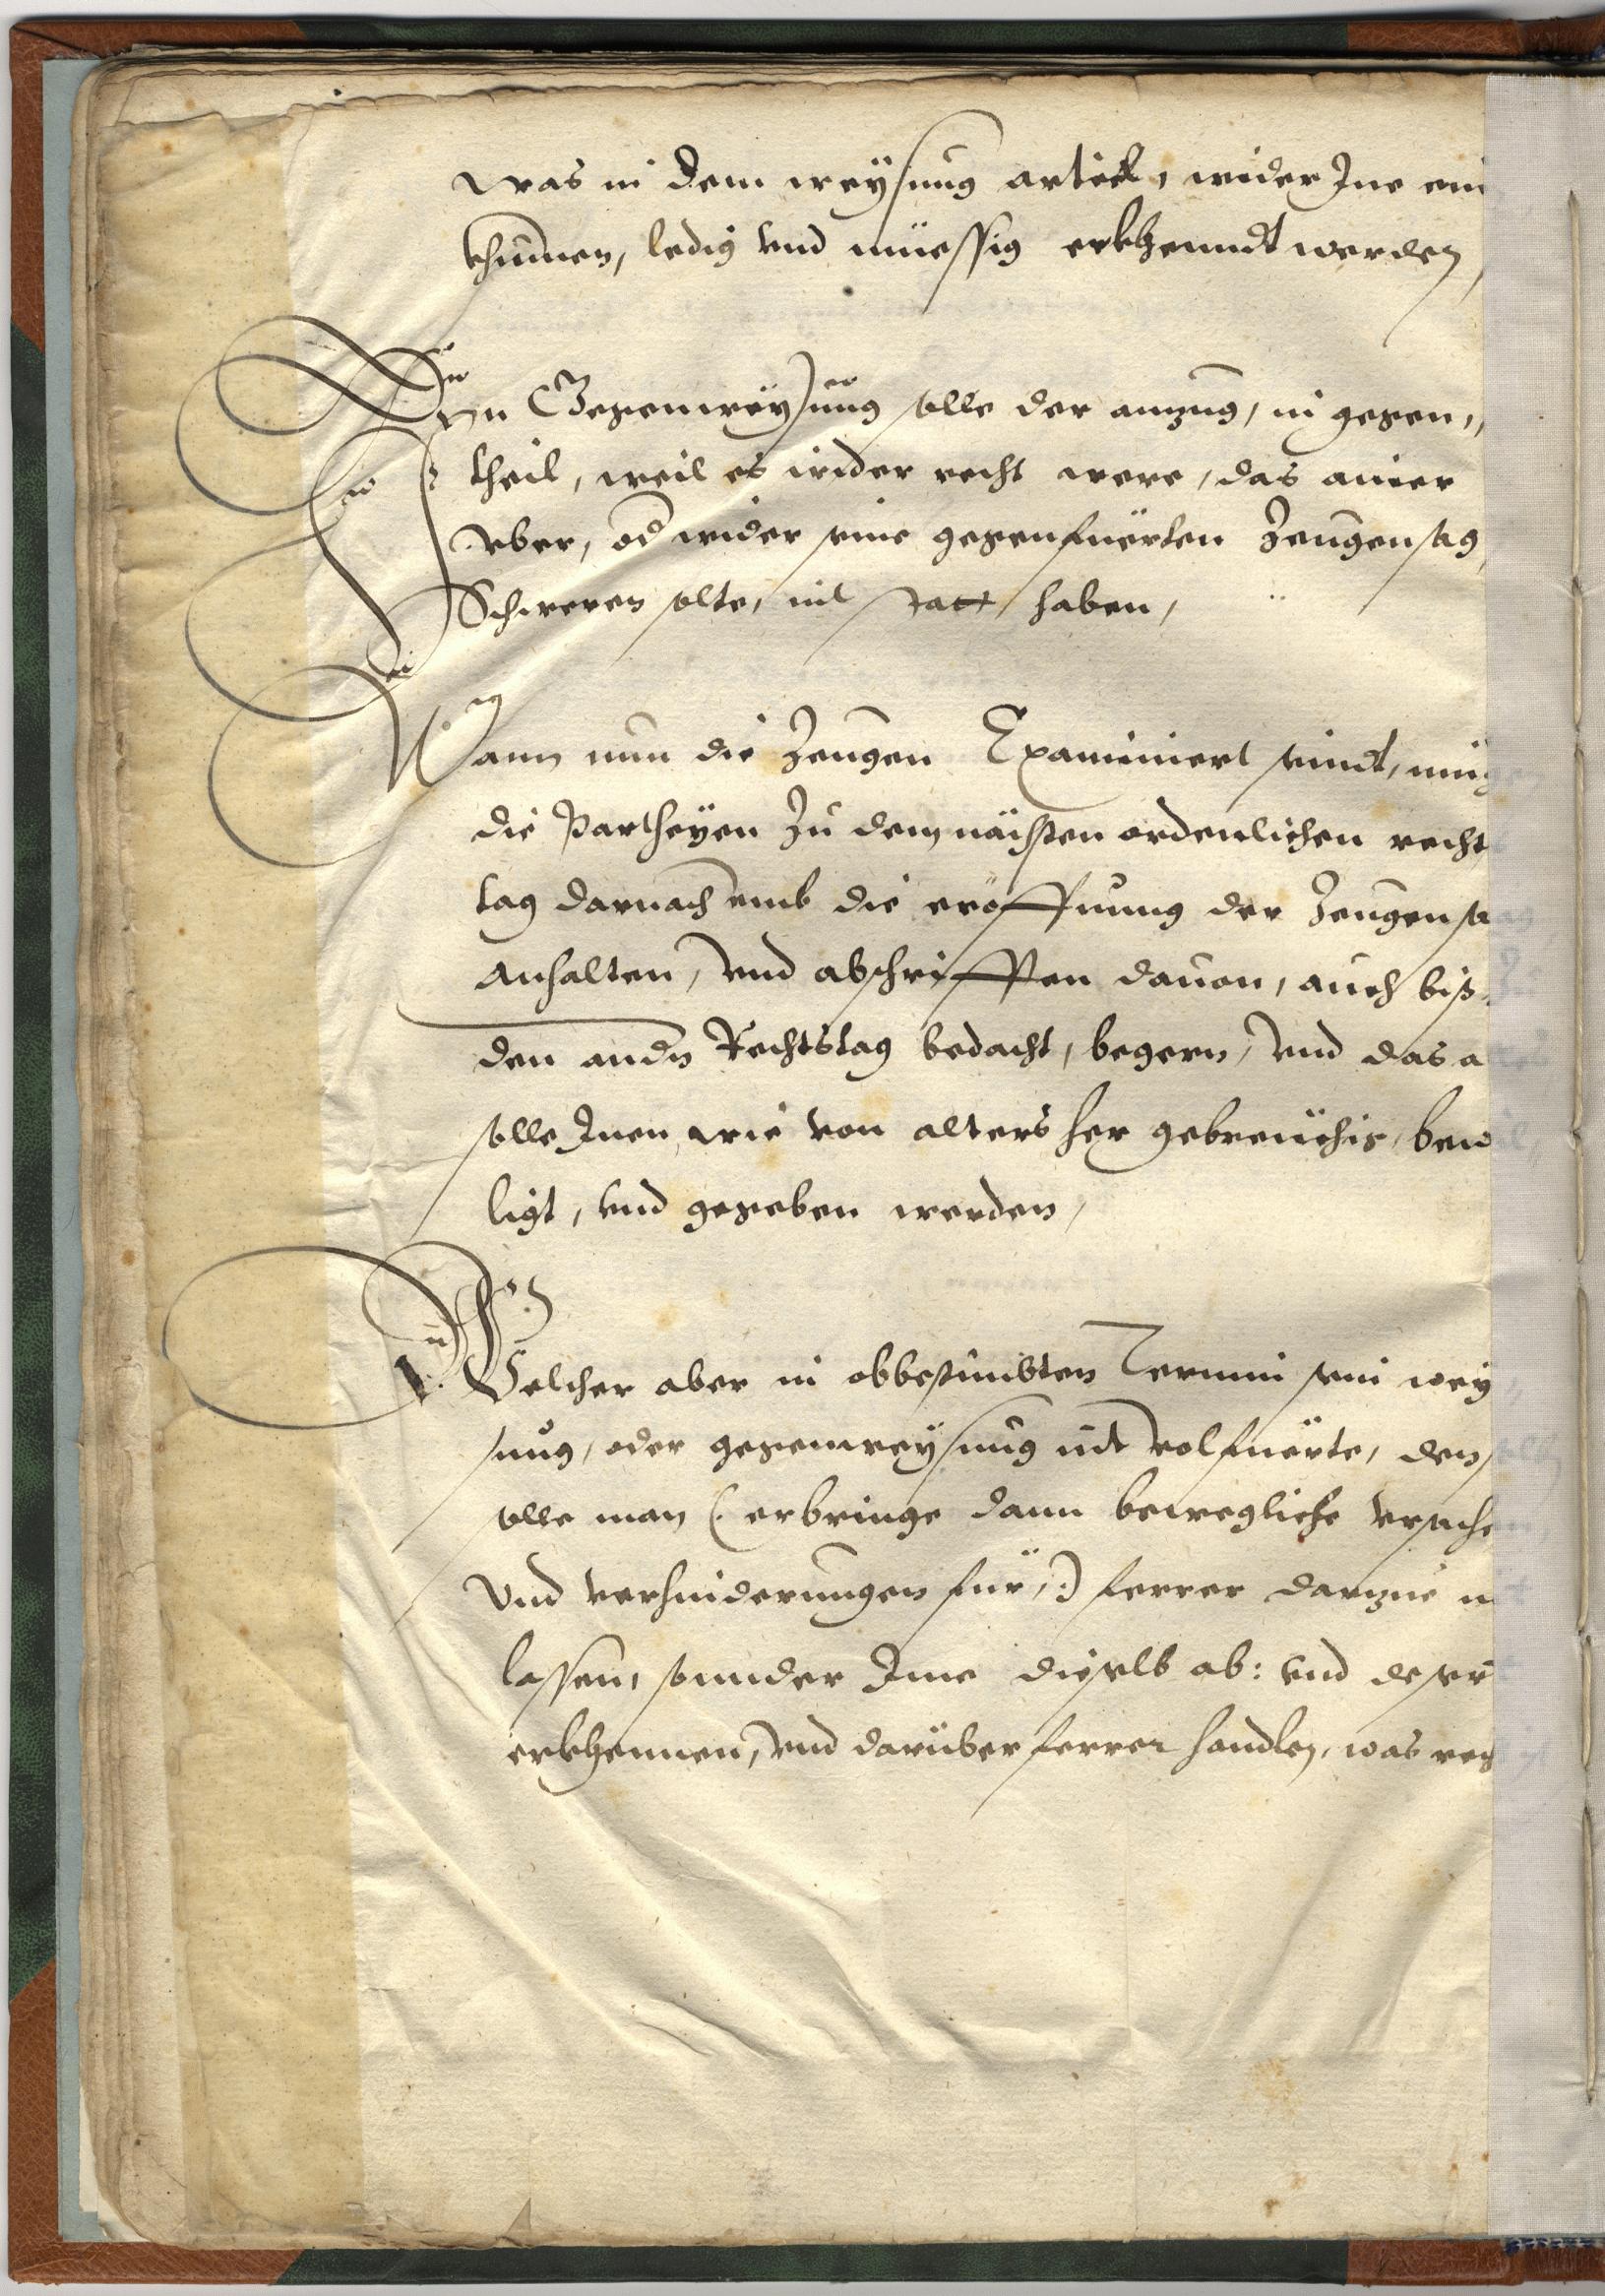 was in dem weysung articl, wider Ine ein
khumen, ledig vnd müessig erkhenndt werden,
In Gegenweysung solle der anzug, in gegen,,
theil, weil es wider recht were, das ainer
vber, od wider seine gegenfuerten Zeugen sag,
Schweren solte, nit statt haben,
Wann nun die Zeugen Examiniert seindt, mü
die Partheyen Zu dem nächsten ordenlichen recht
tag darnach vmb die eröffnung der Zeugen sa
Anhalten, vnd abschrifften dauon, auch biß
den andn Rechtstag bedacht, begern, vnd das a
solle Inen wie von alters her gebreuchig, bew
ligt, vnd gegeben werden,
Welcher aber in obbestimbten Termin sein wey
sung, oder gegenweysung nit volfuerte, den,
solle man (: erbringe dann bewegliche vrsache
Vnd verhinderungen für, :) ferrer darzue n
lassen, sonnder Ime dieselb ab: vnd
erkhennen, vnd darüber ferrer handlen, was rec